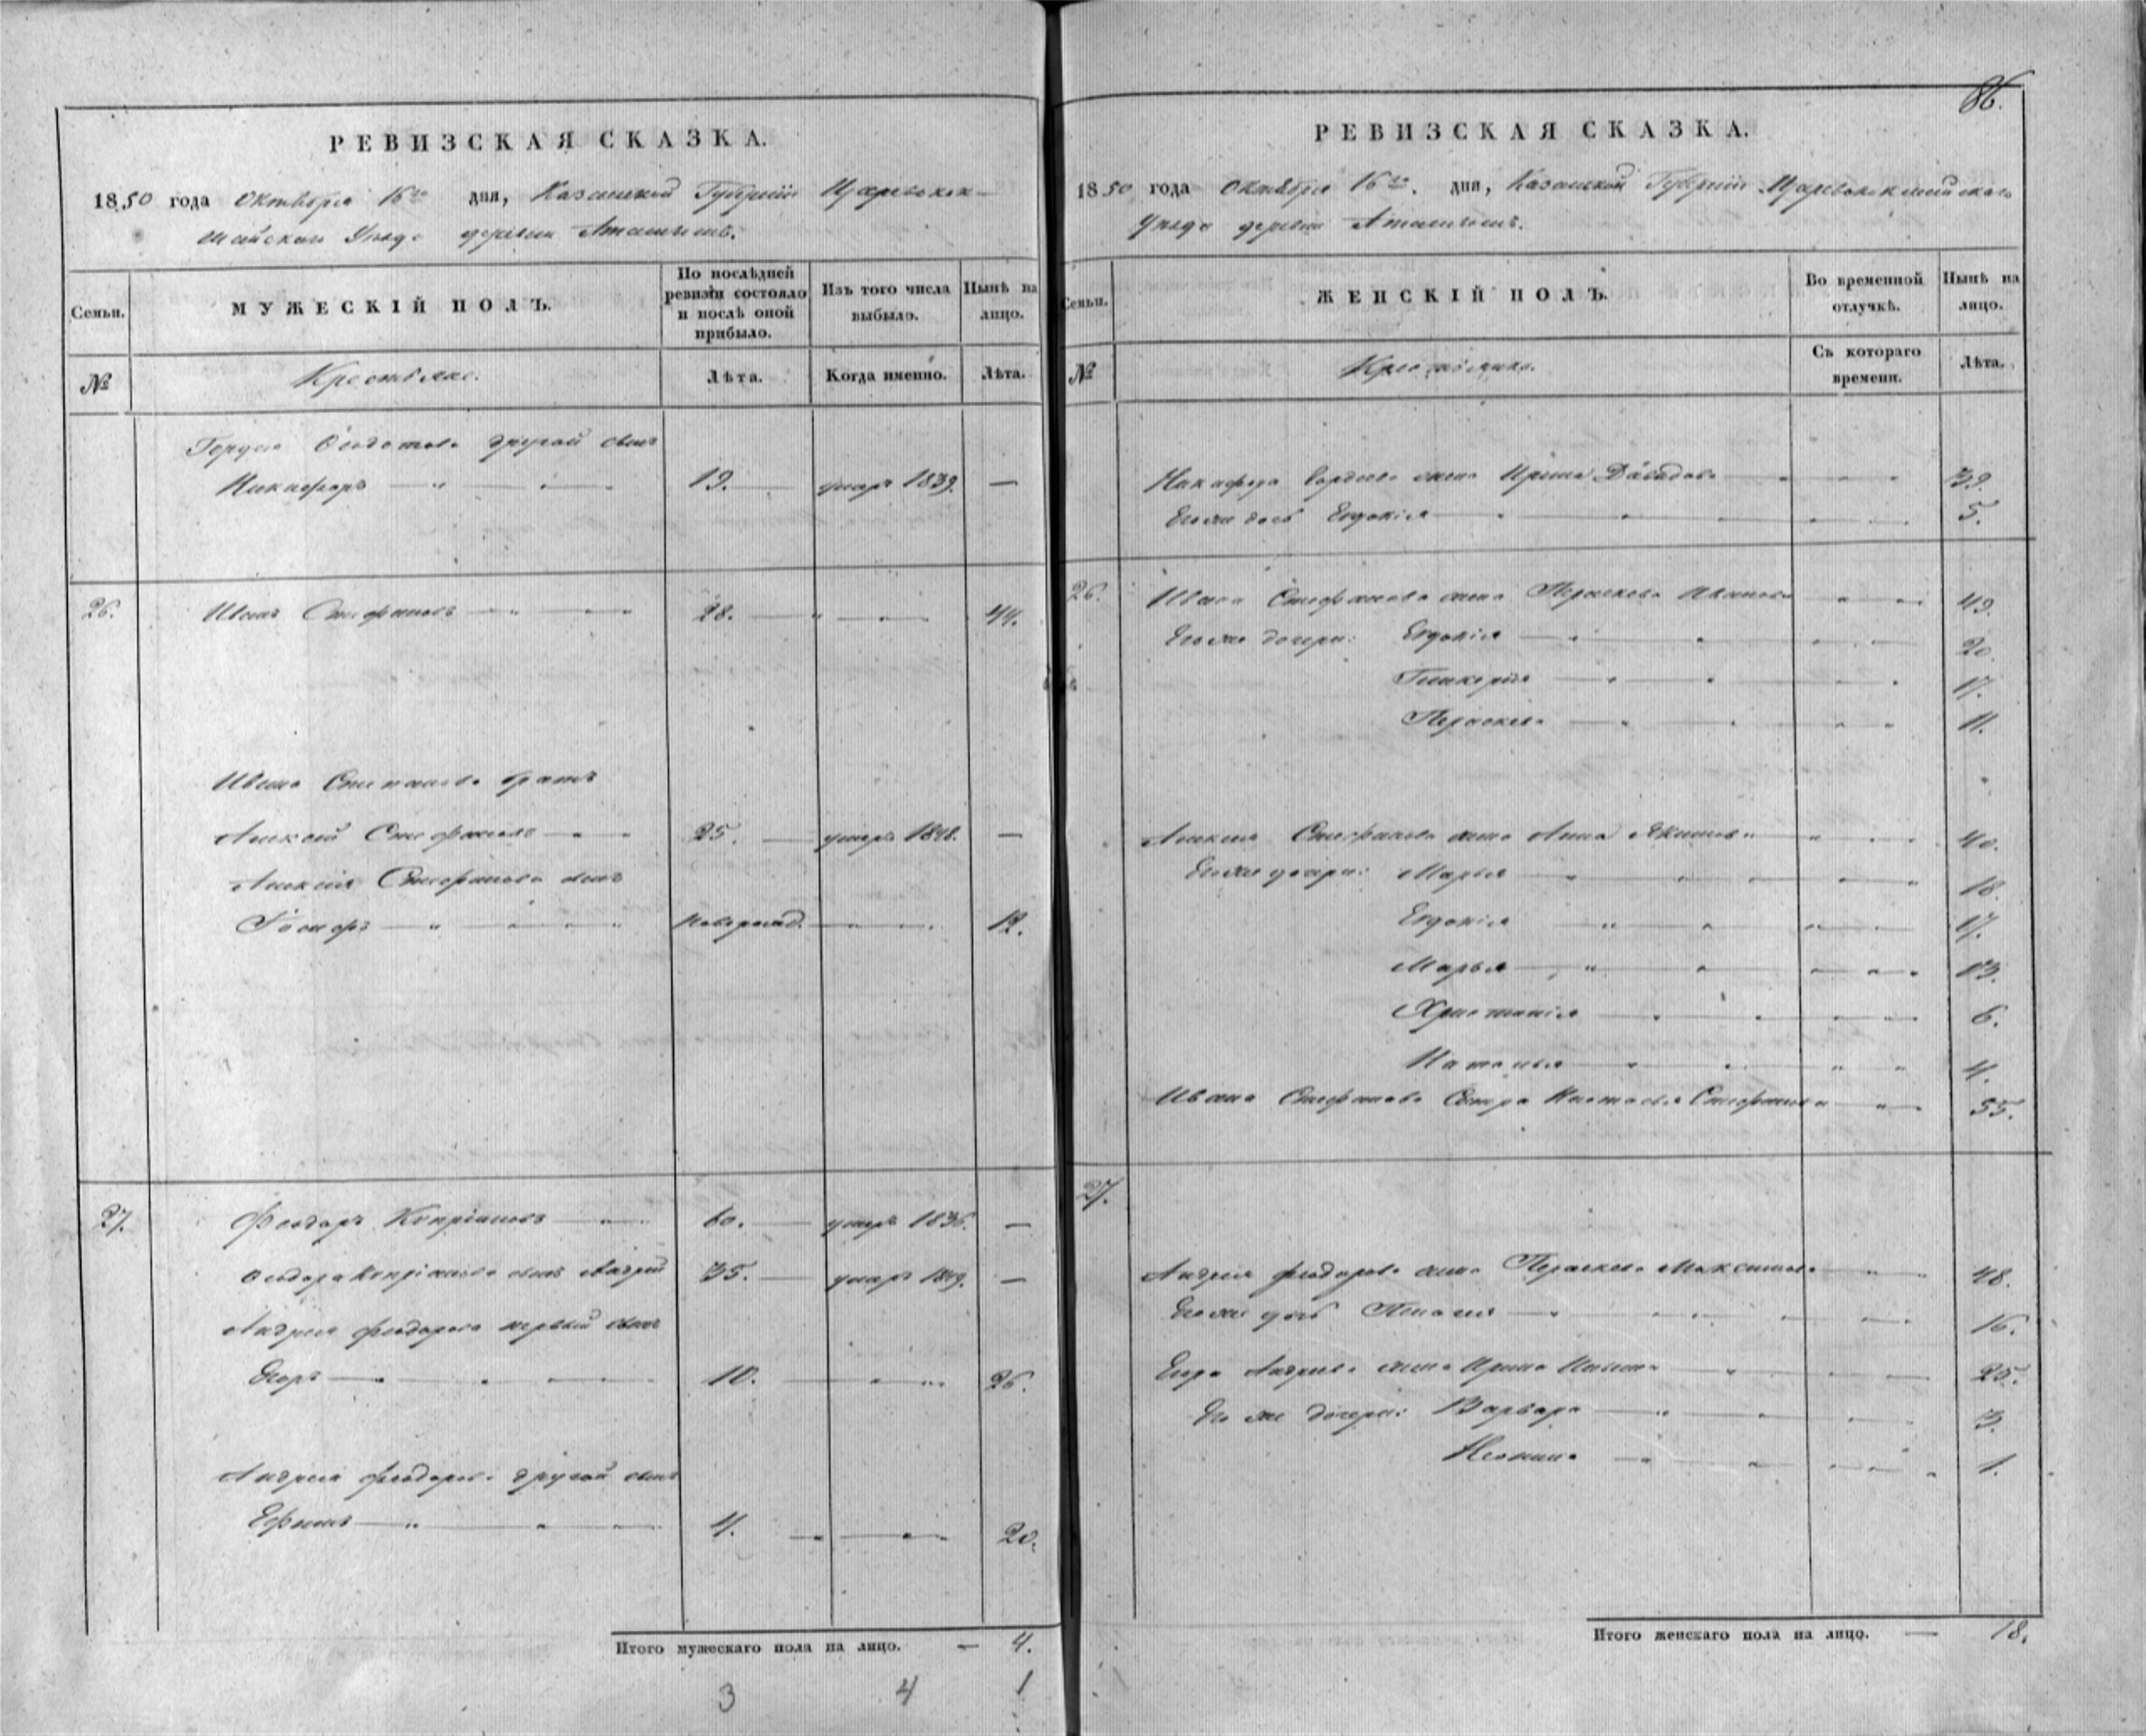 РЕВИЗСКАЯ СКАЗКА.
1850 года Октября 16го дня, Казанской Губернiи Царевокок-
шайскаго Уѣзда деревни
Семьи.
МУЖЕСКIЙ ПОЛЪ.
По послѣдней ревизiи состояло и послѣ оной прибыло.
Изъ того числа выбыло.
Нынѣ на лицо.
№
Крестьяне.
Лѣта.
Когда именно.
Лѣта.
Гордея Ѳедотова другой сынъ
Никифоръ 19. умеръ 1839. —
26. Иванъ Стефановъ 28. 44.
Ивана Степанова братъ
Алексѣй Стефановъ 25. умеръ 1848. —
Алексѣя Стефанова сынъ
Iосифъ новорожд. 12.
27. Феодоръ Кипрiановъ 60. умеръ 1836. —
Ѳеодора Кипрiанова сынъ Андрей 35. умеръ 1849. —
Андрея Феодорова первый сынъ
Егоръ 10. 26.
Андрея Феодорова другой сынъ
Ефимъ 4. 20.
Итого мужескаго пола на лицо. — 4.
3 4 1
86.
РЕВИЗСКАЯ СКАЗКА.
1850 года Октября 16го. дня, Казанской Губернiи Царевококшайскаго
Уѣзда деревни
Семьи.
ЖЕНСКIЙ ПОЛЪ.
Во временной отлучкѣ.
Нынѣ на лицо.
№
Крестьянки.
Съ котораго времени.
Лѣта.
Никифора Гордеева жена Ирина Давыдова 39.
Его же дочь Евдокiя 5.
26. Ивана Стефанова жена Прасковья Иванова 49.
Его же дочери: Евдокiя 20.
Гликерiя 17.
Прасковья 11.
Алексѣя Стефанова жена Анна Якимова 40.
Его же дочери: Марья 18.
Евдокiя 17.
Марья 13.
Христинiя 6.
Наталья 4.
Ивана Стефанова сестра Настасья Стефанова 55.
27.
Андрея Феодорова жена Прасковья Максимова 48.
Его же дочь Пелагея 16.
Егора Андреева жена Ирина 25.
Его же дочери: Варвара 3.
1.
Итого женскаго пола на лицо. — 18.